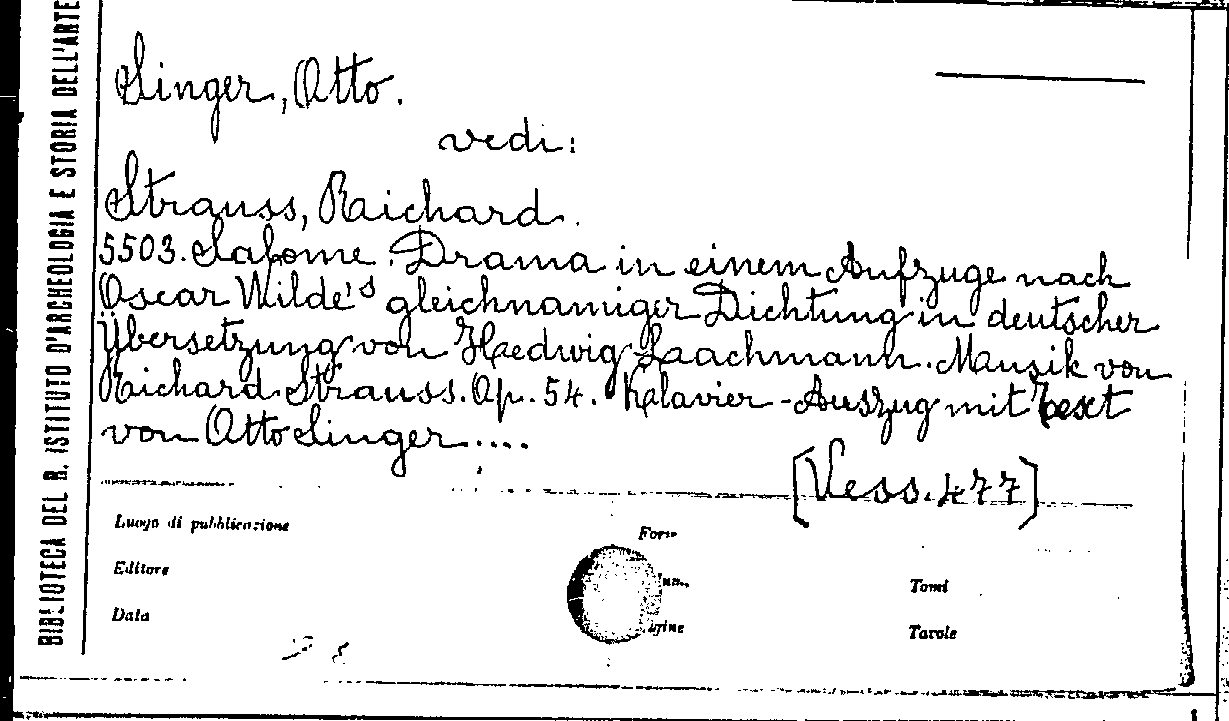 BIBLIOTECA DEL R. ISTITUTO D'ARCHEOLOGIA E STORIA DELL'ARTE
Singer, Otto.
vedi:
Strauss, Richard.
5503. Salome. Drama in einem Aufzuge nach
Oscar Wilde's gleichnamiger Dichtung in deutscher
Übersetzung von Hedwig Laachmann. Musik von
Richard Strauss. Op. 54. Klavier-Auszug mit Text
von Otto Singer....
[Vess. 477]
Luogo di pubblicazione
Editore
Tomi
Data
Tavole